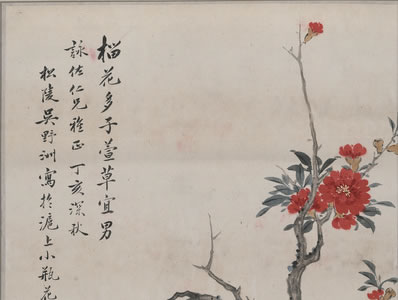 榴花多子萱草宜男
詠佐仁兄雅正丁亥深秋
松陵吳野洲寫於滬上小瓶花